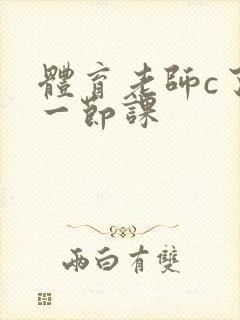 體育老師c了
一節課
兩白有雙